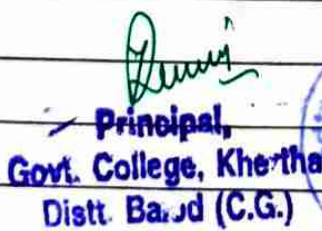 Principal,
Govt. College, Khertha
Distt. (C.G.)